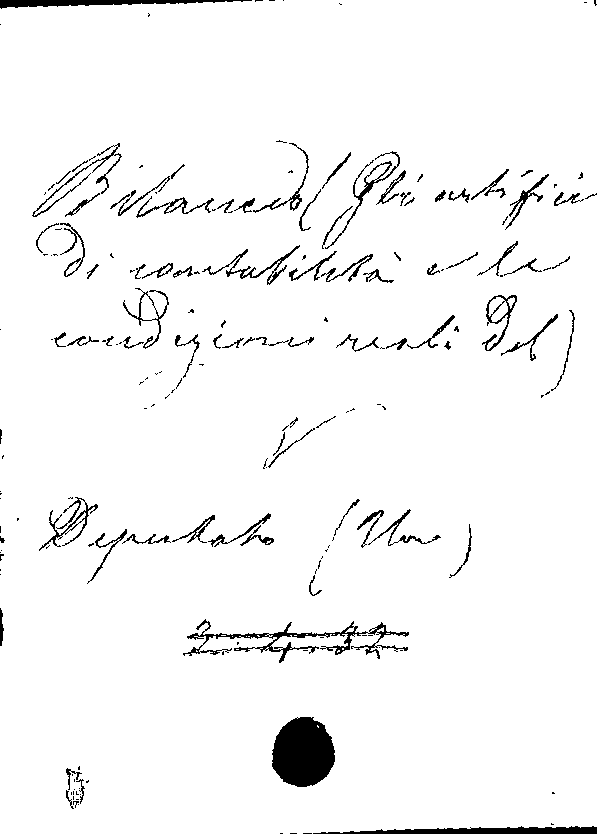 Bilancio (Gli artifici
di contabilità e le
condizioni reali del)
V
Deputato (Un)